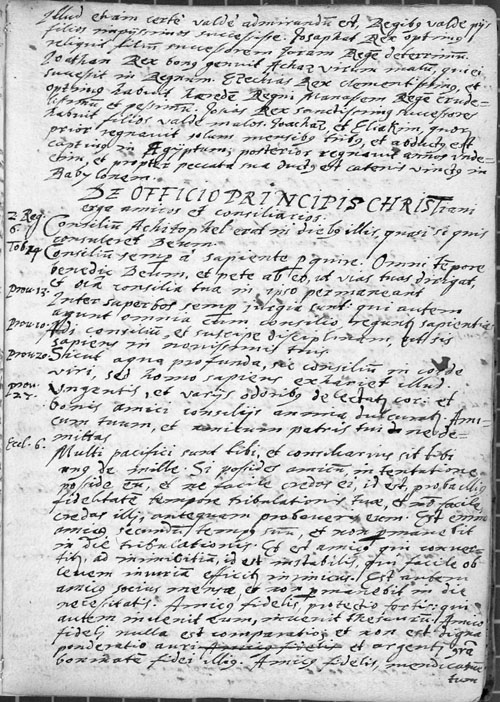 Illud etiam certe valde admirandum est, Regibus valde pijs
filios impijssimos successisse. Josaphat Rex optimus
reliquit filium successorem Joram Regem deterrimum.
Joathan Rex bonus genuit Achaz virum malum, qui ei
successit in Regnum. Ezechias Rex clementissimus, et
optimus habuit hæredem Regni Manassem Regem crude-
lissimum et pessimum. Josias Rex sanctissimus successores
habuit filios valde malos Joachaz, et Eliakim, quorum
prior regnavit solum mensibus tribus, et abductus est
captivus in Ægyptum; posterior regnavit annos unde-
cim, et propter peccata sua ductus est catenis vinctus in
Babylonem.
DE OFFICIO PRINCIPIS CHRISTiani
erga amicos et consiliarios.
2 Reg. Consilium Achitophel erat in diebus illis, quasi si quis
6. consuleret Deum.
Tob. 4 Consilium semper a sapiente perquire. Omni tempore
benedic Deum, et pete ab eo, ut vias tuas dirigat,
et omnia consilia tua in ipso permaneant.
prou. 13. Inter superbos semper iurgia sunt: qui autem
agunt omnia cum consilio, reguntur sapientia
prou. 19. Audi consilium, et suscipe disciplinam, ut sis
sapiens in novissimis tuis.
prou. 20. Sicut aqua profunda, sic consilium in corde
viri, sed homo sapiens exhauriet illud.
prou. Unguentis, et varijs odoribus delectatur cor: et
27. bonis amici consilijs anima dulcoratur. Ami-
cum tuum, et amicum patris tui ne de-
mittas.
Eccl. 6. Multi pacifici sunt tibi, et consiliarius sit tibi
unus de mille. Si possides amicum, in tentatione
posside eum, et ne facile credas ei, id est, proba illius
fidelitatem tempore tribulationis tuæ, et non facile
credas illi, antequam probaveris eum. Est enim
amicus secundum tempus suum, et non permanebit
in die tribulationis. Et est amicus qui conver-
titur ad inimicitiam, id est instabilis, qui facile ob
levem iniuriam efficitur inimicus. Est autem
amicus socius mensæ, et non permanebit in die
necessitatis. Amicus fidelis, protectio fortis: qui
autem invenit eum, invenit thesaurum. Amico
fideli nulla est comparatio, et non est digna
ponderatio auri Amicus fidelis et argenti contra
bonitatem fidei illius. Amicus fidelis, medicamen
tum